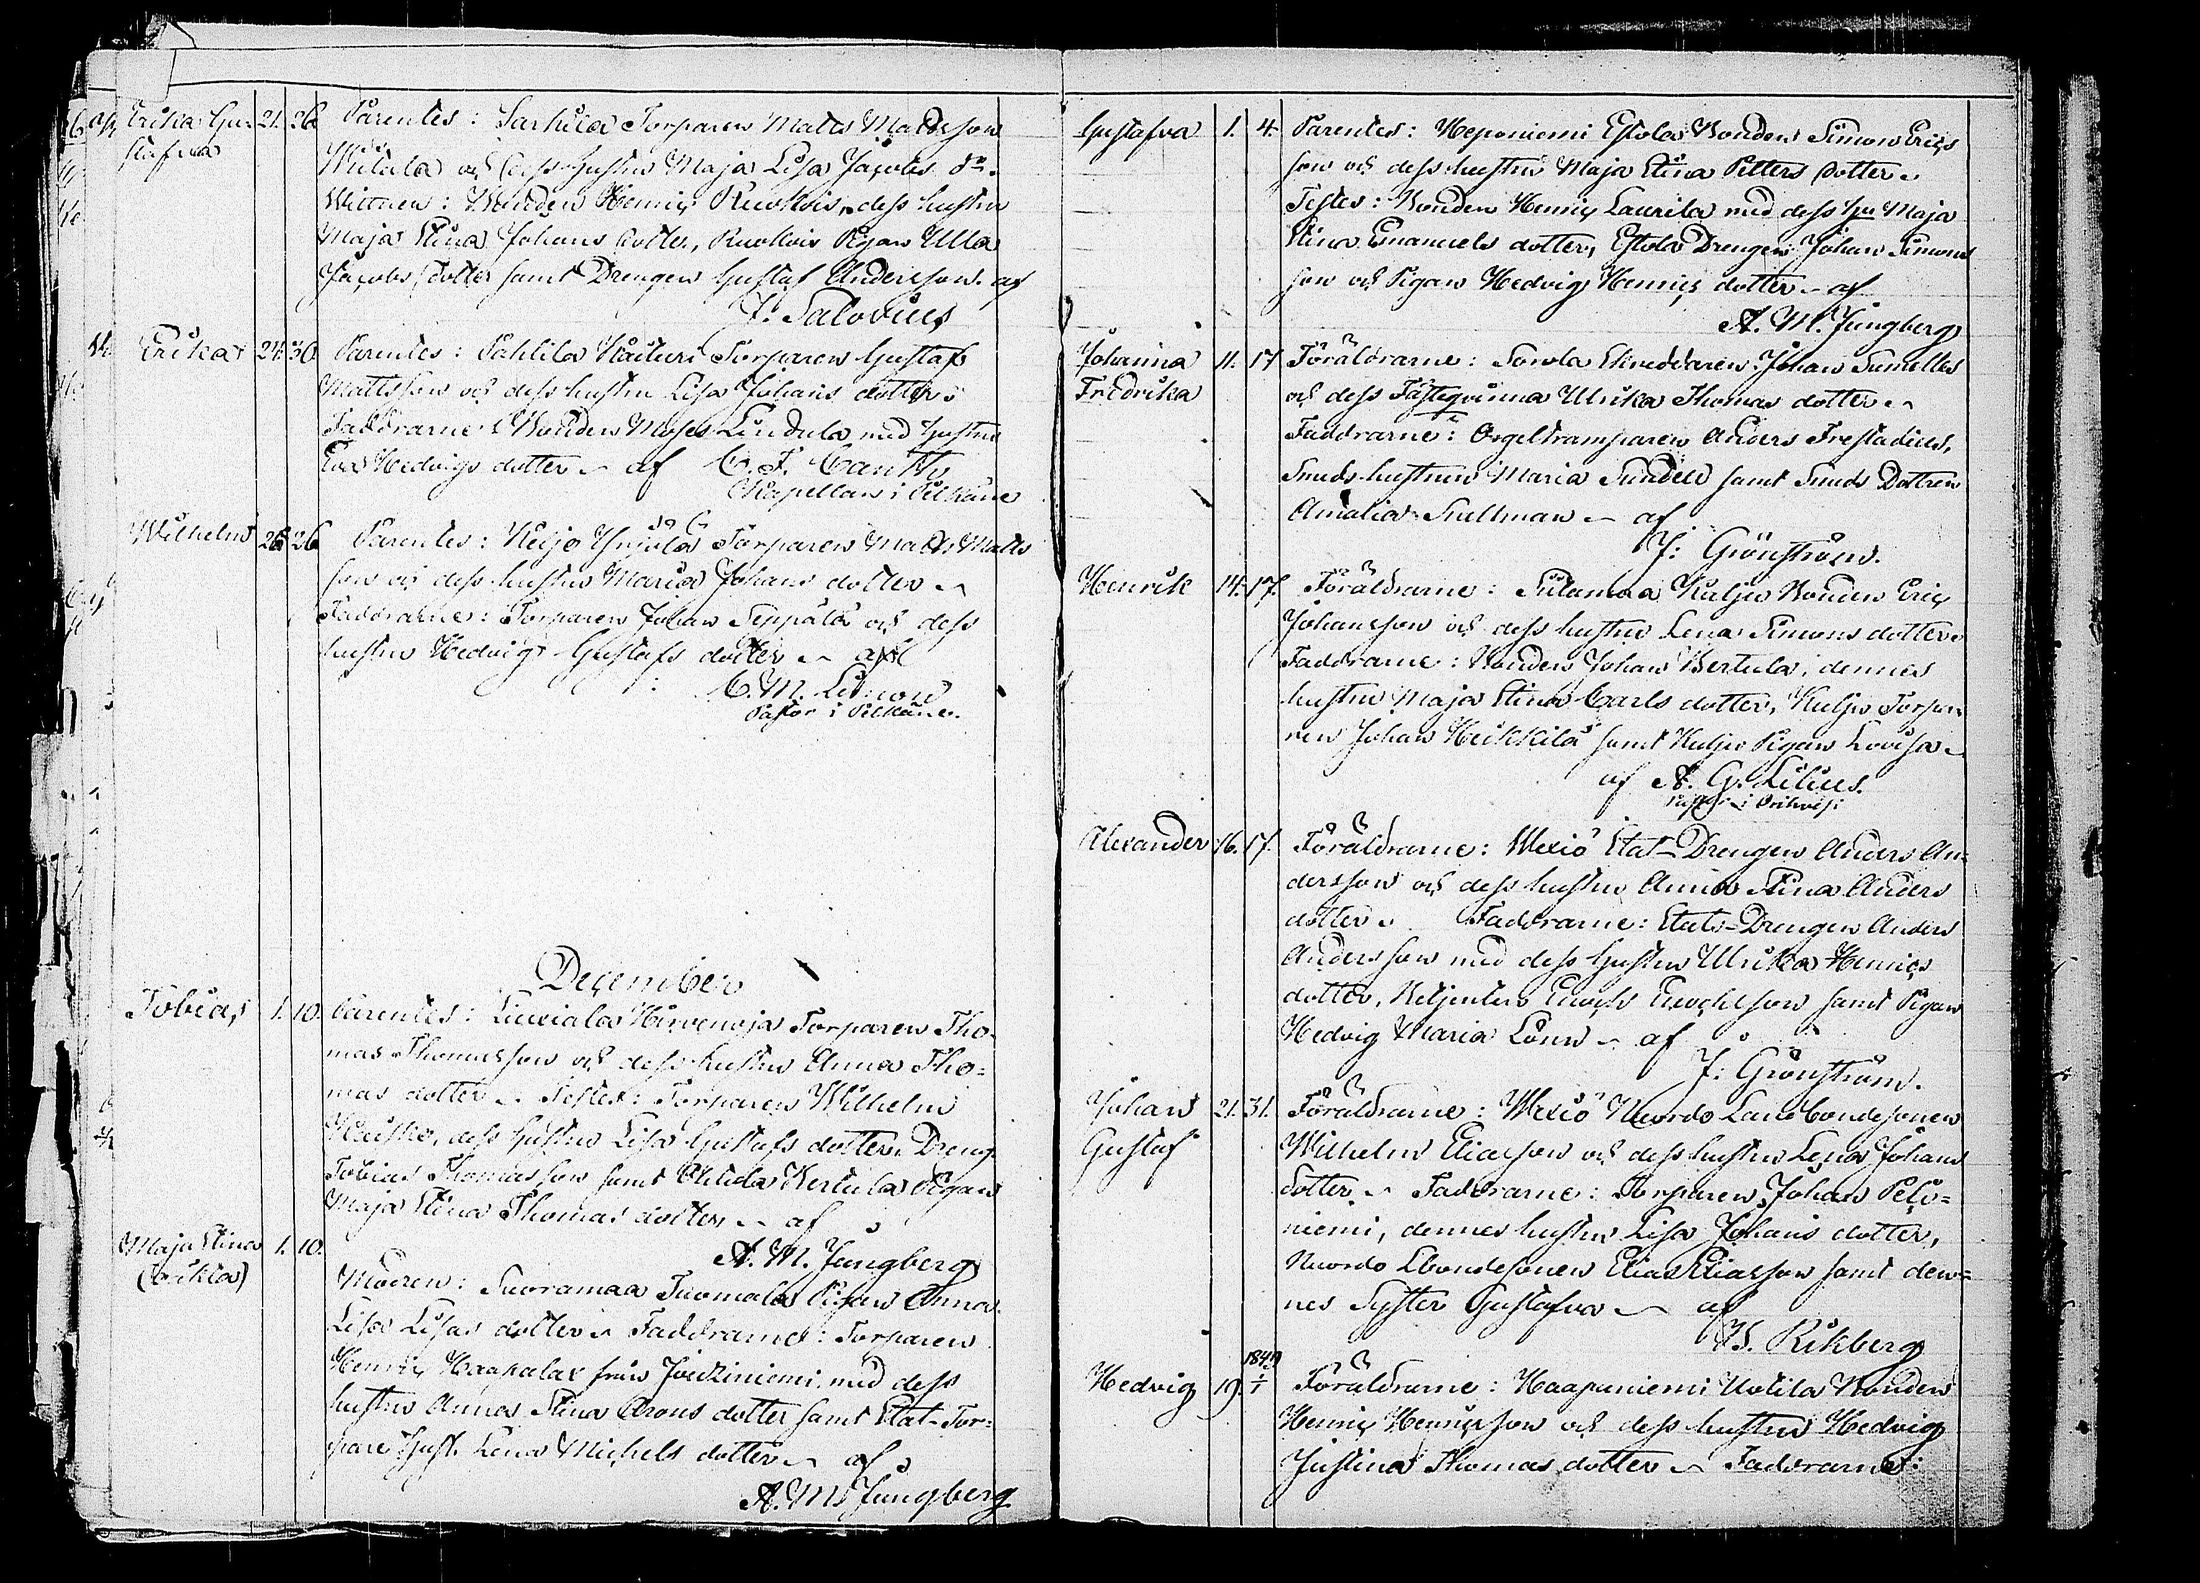 Erika Gu= 21. 26. Parentes: Sarkila Torparen Matts Mattsson
stafva
och dess Hustru Maja Lisa Jacobs dr.
Wittnen: Bonden Henric Ruokois, dess hustru
Maja Stina Johans dotter, Ruokois Pigan Ulla
Jacobs dotter samt Drengen Gustaf Andersson. af
J: Salovius
Erika 24. 30. Parentes: Pahlila Torparen Gustaf
Mattsson och dess hustru Lisa Johans dotter.
Faddrarne: Bonden Moses Lindula med hustru
Eva Hedvigs dotter af C. F. Canth
Kapellan i Pelkäne
Wilhelm 25 26 Parentes: Keijo Torparen Matts Matts
son och dess hustru Maria Johans dotter
Faddrarne: Torparen Johan Seppälä och dess
hustru Hedvig Gustafs dotter af
C. M. Limon
Pastor i Pelkäne.
December
Tobias 1. 10. Parentes: Liuxiala Hirvenoja Torparen Tho-
mas Thomasson och dess hustru Anna Tho=
mas dotter Testes: Torparen Wilhelm
dess hustru Lisa Gustafs dotter, Dreng
Tobias Thomasson samt Ahtula Kertula Pigan
Maja Stina Thomas dotter af
A. M. Jungberg
Maja Stina 1. 10.
(oäkta)
Modren: Suoramaa Tuomala Pigan Anna
Lisa Lisas dotter Faddrarne: Torparen
Henric Haapalax från med dess
hustru Anna Stina Arons dotter samt Stat-Tor=
pare Hust. Lena Michels dotter af
A. M. Jungberg
Gustafva 1. 4. Parentes: Heponiemi Eskola Bonden Simon Erics
son och dess hustru Maja Stina Petters dotter
Testes: Bonden Henric Laurila med dess Hu Maja
Stina Emanuels dotter, Eskola Drengen Johan Simons
son och Pigan Hedvig Henrics dotter af
A. M. Jungberg
Johanna 11. 17 Föräldrarne: Sorola Skreddaren Johan Sumelles
Fredrika och dess Fästeqvinna Ulrika Thomas dotter
Faddrarne: Orgeltramparen Anders Frestadius,
Smeds hustrun Maria Sundell samt Smeds Dottren
Amalia Snellman af
J: Grönström.
Henrik 14. 17. Föräldrarne: Suoramaa Kuljus Bonden Eric
Johansson och dess hustru Lena Simons dotter
Faddrarne: Bonden Johan Kertula, dennes
hustru Maja Stina Carls dotter, Kuljus Torpa-
ren Johan Heikkilä samt Kuljus Pigan Lovisa
af A. G. Lilius.
Pastor i Orihvesi
Alexander 16. 17. Föräldrarne: Wexiö Stat-Drengen Anders An=
dersson och dess hustru Anna Stina Anders
dotter. Faddrarne: Stats-Drengen Anders
Andersson med dess Hustru Ulrika Henrics
dotter, Enochsson samt Pigan
Hedvig Maria Lönn af
J: Grönström.
Johan 21. 31. Föräldrarne: Wexiö Nuordo Landbondesonen
Gustaf Wilhelm Eliasson och dess hustru Lena Johans
dotter. Faddrarne: Torparen Johan Pelo=
niemi, dennes hustru Lisa Johans dotter,
Nuordo Lbondesonen Elias Eliasson samt den=
nes Syster Gustafva af
Rikberg
1849
Hedvig 19. 1/1 Föräldrarne: Haapaniemi Uotila Bonden
Henric Henricsson och dess hustru Hedvig
Justina Thomas dotter Faddrarne: